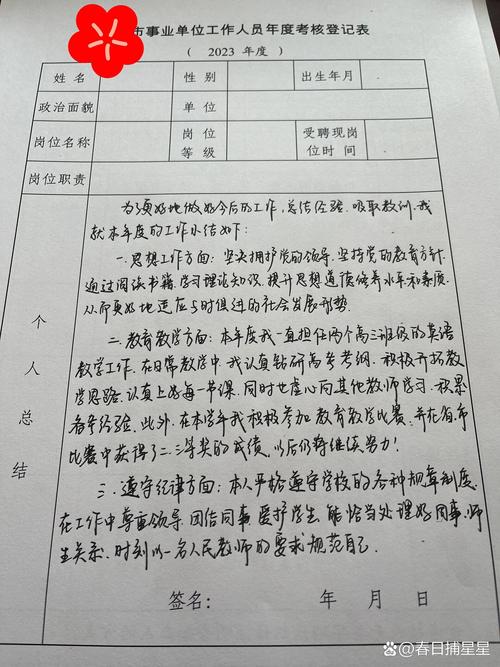 市事业单位工作人员年度考核登记表
（ 2023 年度 ）
姓 名 性 别 出生年月
政治面貌 单 位
岗位名称 岗位等级 受聘现岗位时间
岗位职责
个人总结
为了更好地做好今后的工作，总结经验、吸取教训，我
就本年度的工作小结如下：
一.思想工作方面：坚决拥护党的领导，坚持党的教育方针，
通过阅读书籍，学习理论知识，提升思想道德修养水平和素质，
从而更好地适应与时俱进的社会发展形势。
二.教育教学方面：本年度我一直担任两个高三班级的英语
教学工作，在日常教学中，我认真钻研高考考纲，积极开拓教
学思路，认真上好每一节课，同时也虚心向其他教师学习，积累
备考经验。此外，在本学年我积极参加教育教学比赛，并在省、市
比赛中获得了二、三等奖的成绩，以后仍将继续努力！
三.遵守纪律方面：本人严格遵守学校的各种规章制度，
在工作中尊重领导，团结同事，爱护学生，能恰当处理好同事、师
生关系，时刻以一名人民教师的要求规范自己。
签名： 年 月 日
Bai 百家号/春日捕星星